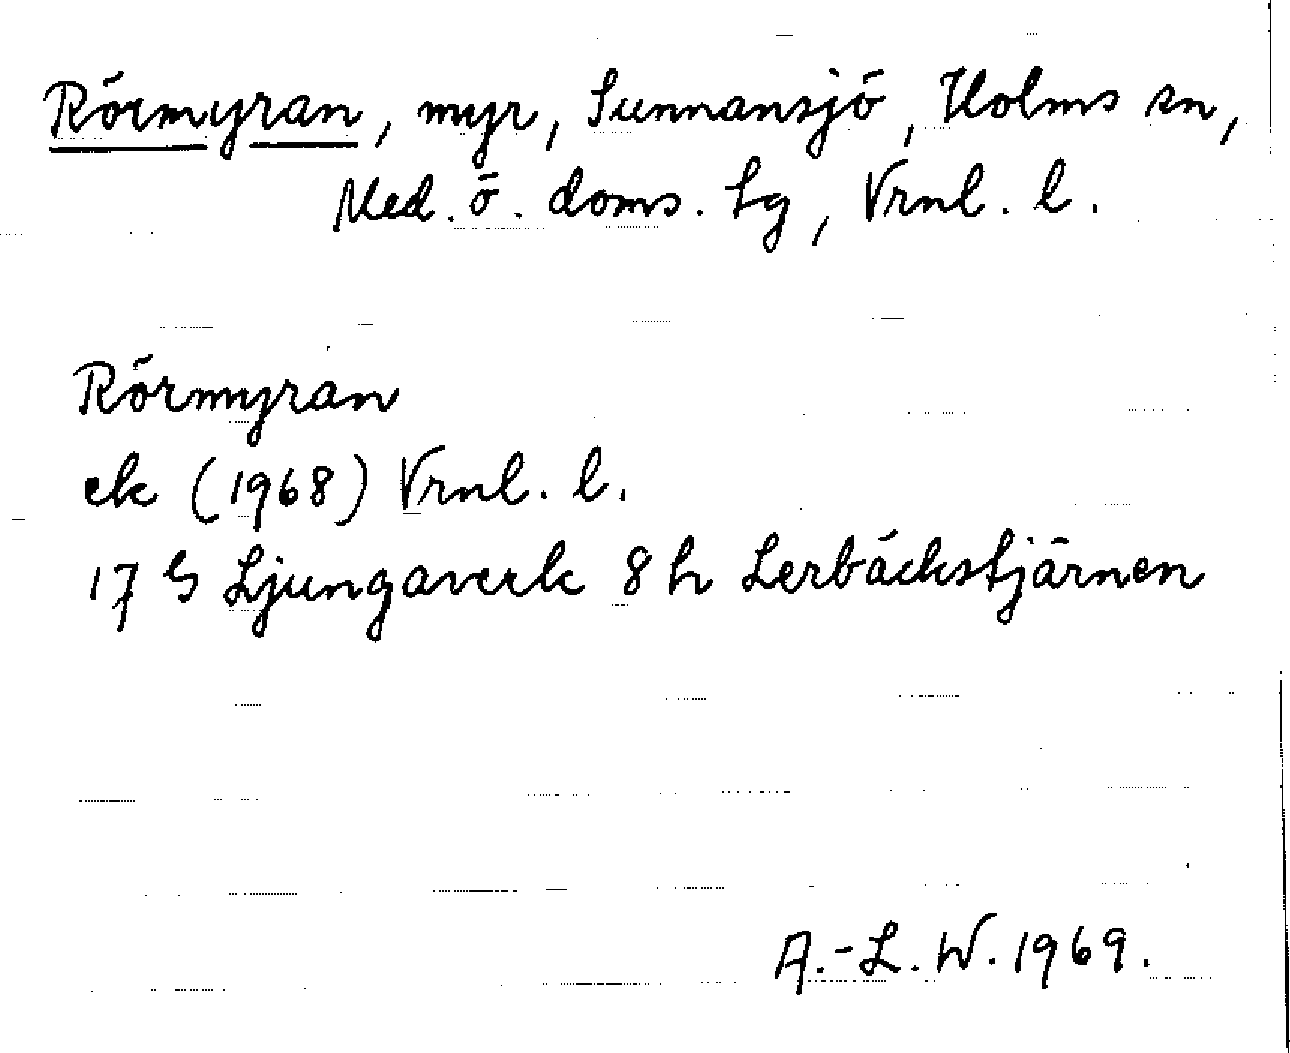 Rörmyran, myr, Sunnansjö, Holms sn,
Med. ö. doms. lg, Vrnl. l.
Rörmyran
ek (1968) Vrnl. l.
17 G Ljungaverk 8 h Lerbäckstjärnen
A.-L. W. 1969.